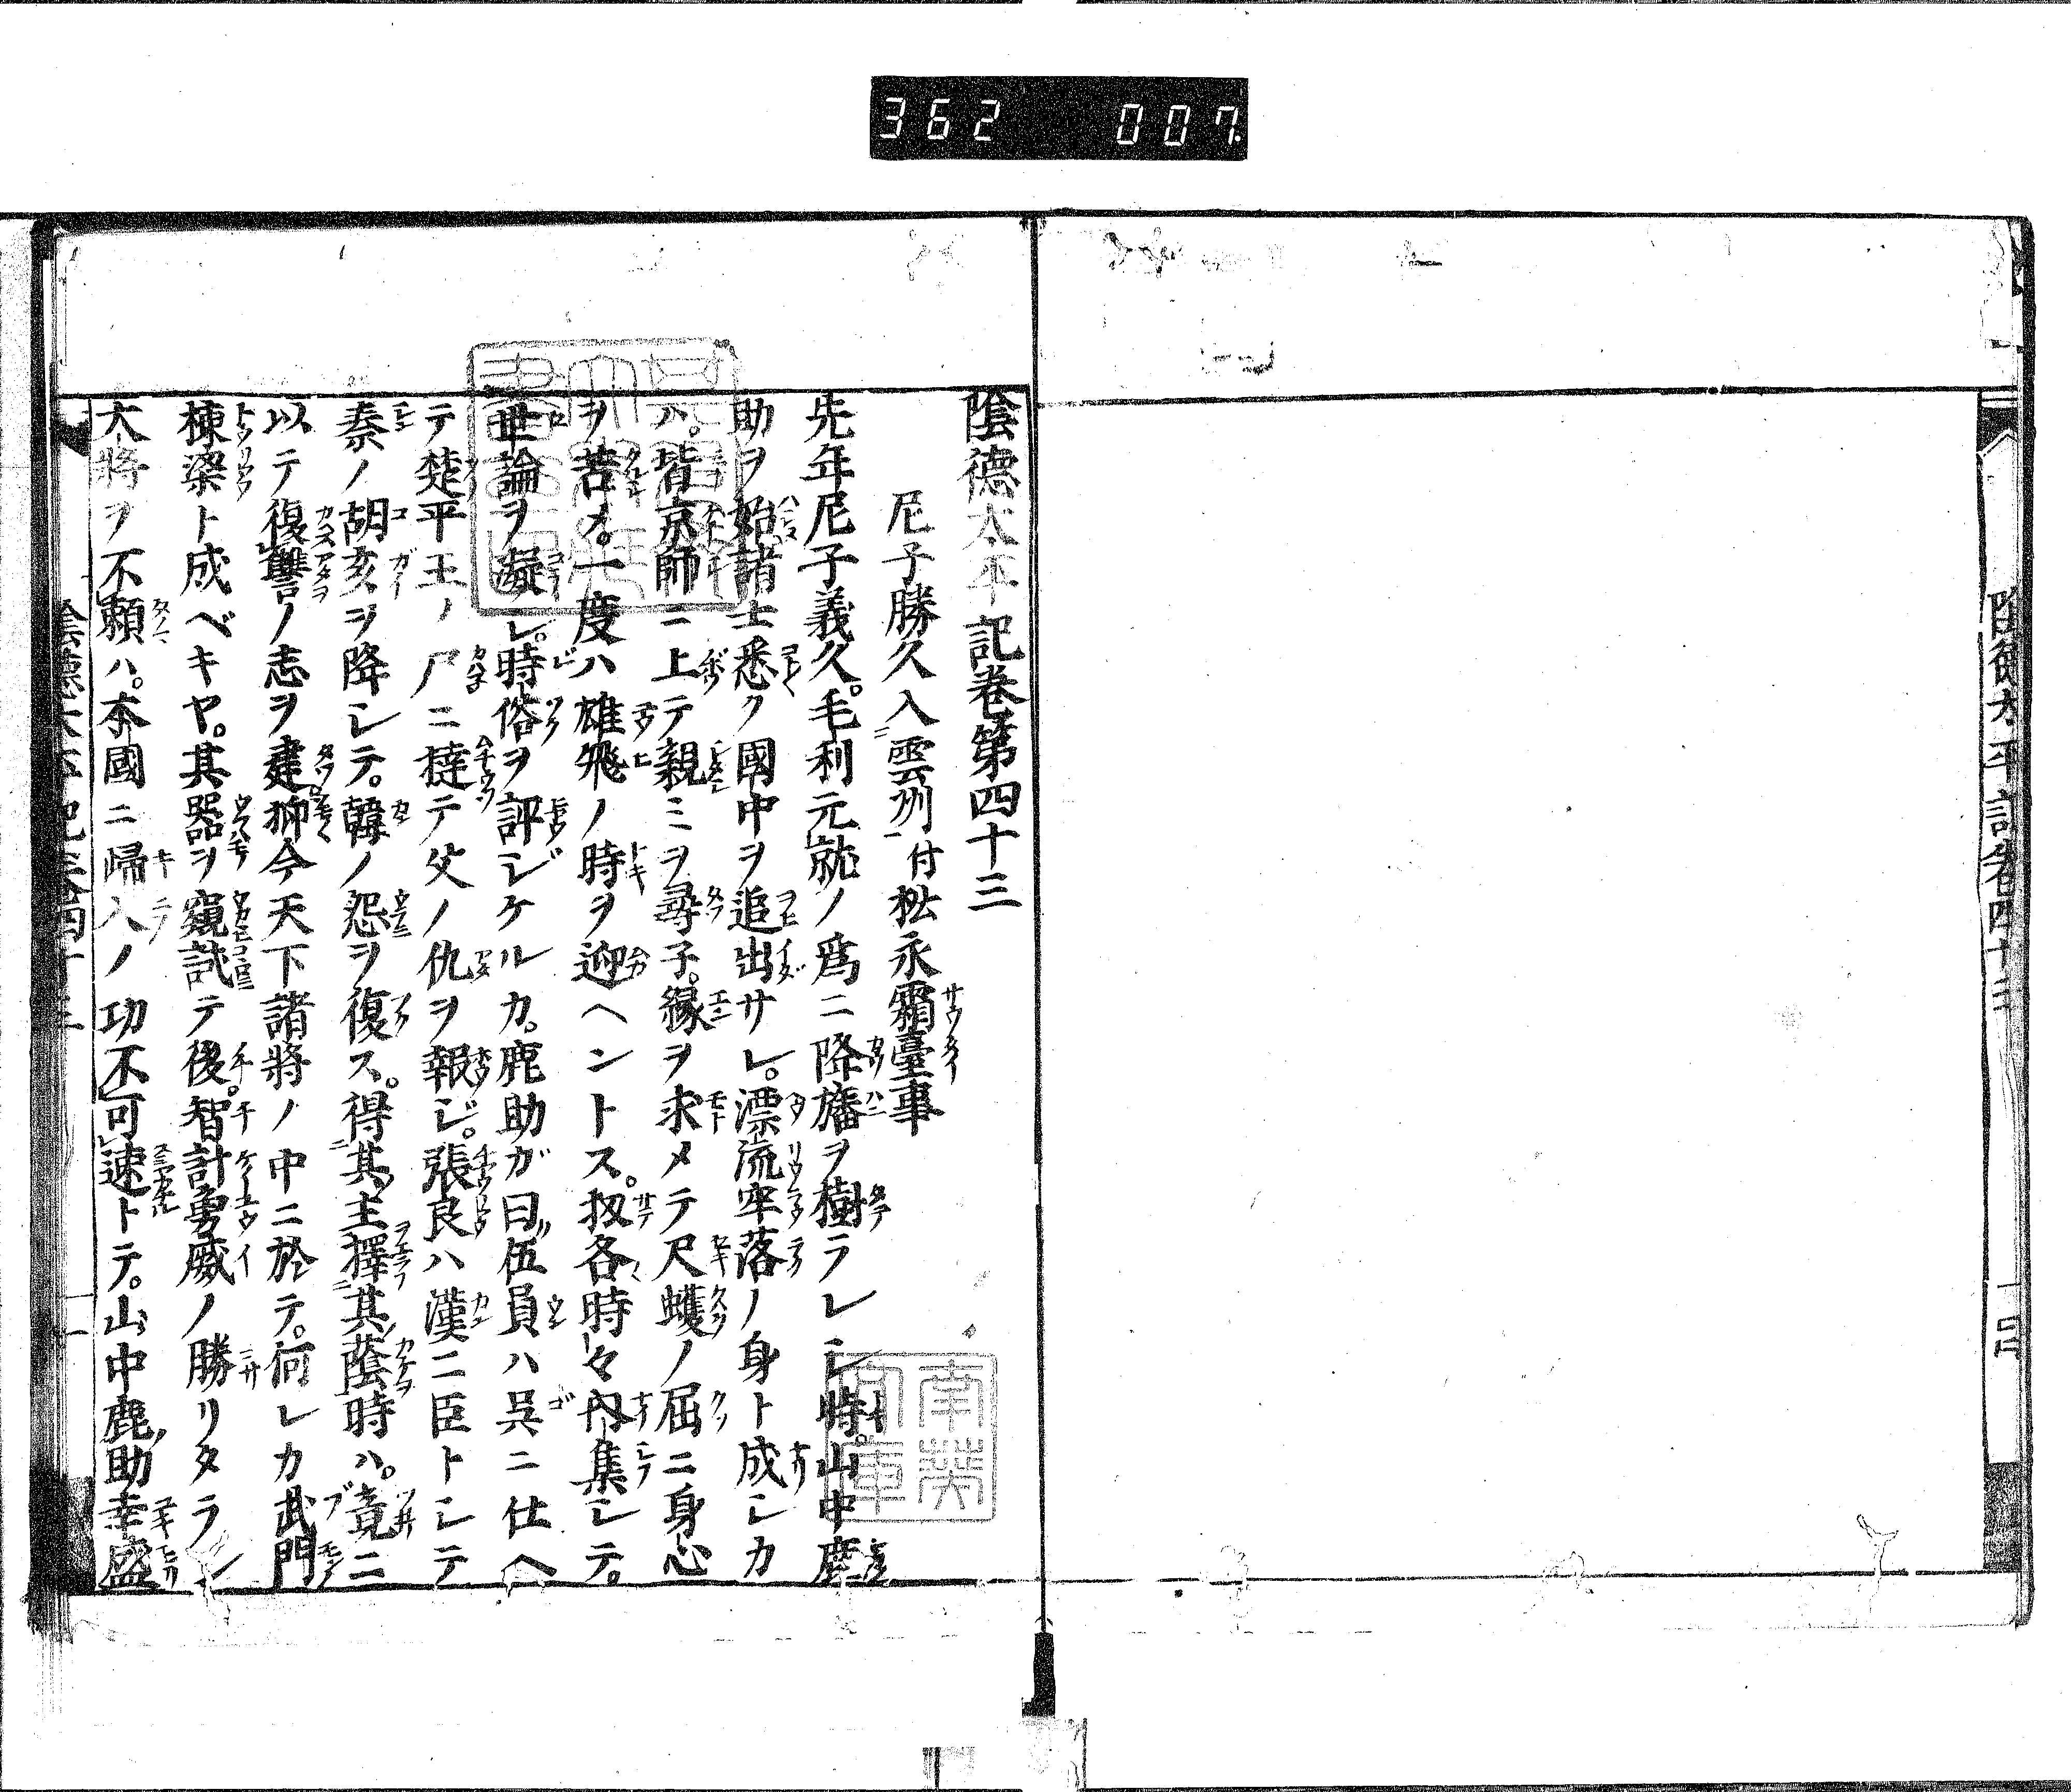 362 007
陰德太平記卷四十三
四
陰德太平記卷第四十三
尼子勝久入雲州付松永霜臺事
先年尼子義久。毛利元就ノ爲ニ降旛ヲ樹ラレシ時。山中鹿
助ヲ始諸士悉ク國中ヲ追出サレ。漂流牢落ノ身ト成シカ
ハ。皆京師ニ上テ親ミヲ尋子。縁ヲ求メテ尺蠖ノ屈ニ身心
ヲ苦メ。一度ハ雄飛ノ時ヲ迎ヘントス。扨各時々內集シテ。
世論ヲ凝レ。時俗ヲ評ジケルカ。鹿助ガ曰伍員ハ呉ニ仕ヘ
テ楚平王ノ尸ニ撻テ父ノ仇ヲ報ジ。張良ハ漢ニ臣トシテ
秦ノ胡亥ヲ降シテ。韓ノ怨ヲ復ス。得其主擇其蔭時ハ。竟ニ
以テ復讐ノ志ヲ建抑今天下諸將ノ中ニ於テ。何レカ武門
棟梁ト成ベキヤ。其器ヲ窺試テ後。智計勇威ノ勝リタラン
大將ヲ不賴ハ。本國ニ歸入ノ功不可速トテ。山中鹿助幸盛
陰德太平記卷四十三
一